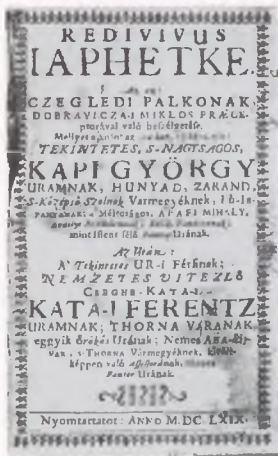 REDIVIVUS
IAPHETKE.
CZEGLEDI PALKONAK,
DOBRAVICZA-I MIKLOS PRÆCE-
ptorával való beszélgetése.
TEKINTETES, S-NAGYSAGOS,
KAPI GYÖRGY
URAMNAK, HUNYAD, ZARAND,
S-Középső Szolnok Varmegyéknek,
Méltoságos, APAFI MIHALY,
mint Istent félő Urának.
Az Után:
A' Tekintetes UR-i Férfinak;
NEMZETES VITEZLŐ
KATA-I FERENTZ
URAMNAK; THORNA VÁRANAK,
eggyik örökös Urának; Nemes ABA-Uj-
VAR, s-THORNA Vármegyéknek,
képpen való Assessorának,
Urának.
Nyomtattatot: ANNO M.DC LXIX.